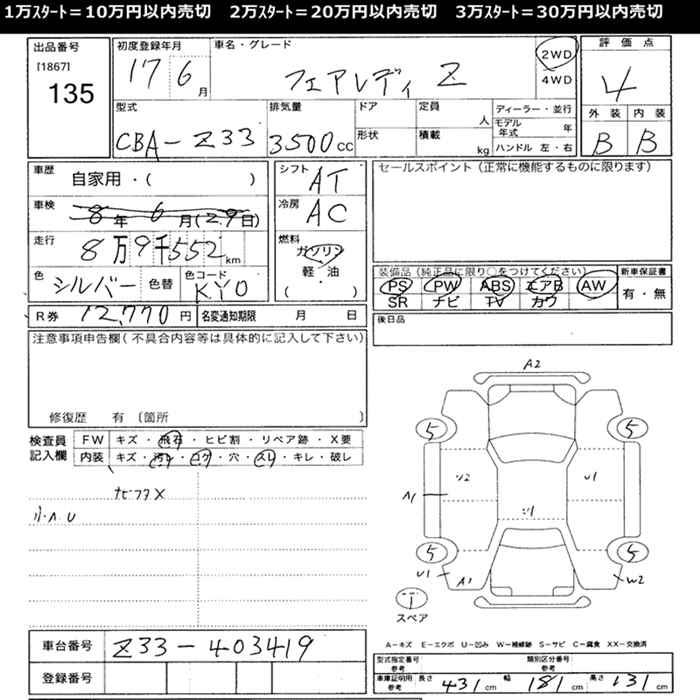 1万スタート＝10万円以内売切　2万スタート＝20万円以内売切　3万スタート＝30万円以内売切
出品番号
[1867]
135
初度登録年月
17 6月
車名・グレード
フェアレディ Z
2WD
4WD
評価点
4
外装 内装
B B
型式
CBA-Z33
排気量
3500cc
ドア
形状
定員
人
積載
kg
ディーラー・並行
モデル年式 年
ハンドル 左・右
車歴
自家用・( )
車検
8年 6月(29日)
走行
8万9千552km
色
シルバー
色替
色コード
KY0
シフト
AT
冷房
AC
燃料
ガソリン
軽・油
・
( )
セールスポイント（正常に機能するものに限ります）
装備品（純正品に限り○をつけてください）
PS PW ABS エアB AW
SR ナビ TV カワ
新車保証書
有・無
R券 12,770円
名変通知期限 月 日
後日品
注意事項申告欄（不具合内容等は具体的に記入して下さい）
修復歴 有（箇所 ）
検査員記入欄
FW キズ・飛石・ヒビ割・リペア跡・X要
内装 キズ・汚レ・コゲ・穴・スレ・キレ・破レ
ナビフタX
小A.U
A2
5 5
A1
ソ2
U1
ソ1
5 5
U1
A1
W2
1
スペア
車台番号
Z33-403419
登録番号
A-キズ E-エクボ U-凹み W-補修跡 S-サビ C-腐食 XX-交換済
型式指定番号 参考
類別区分番号 参考
車庫証明用 参考
長さ 431cm 幅 181cm 高さ 131cm